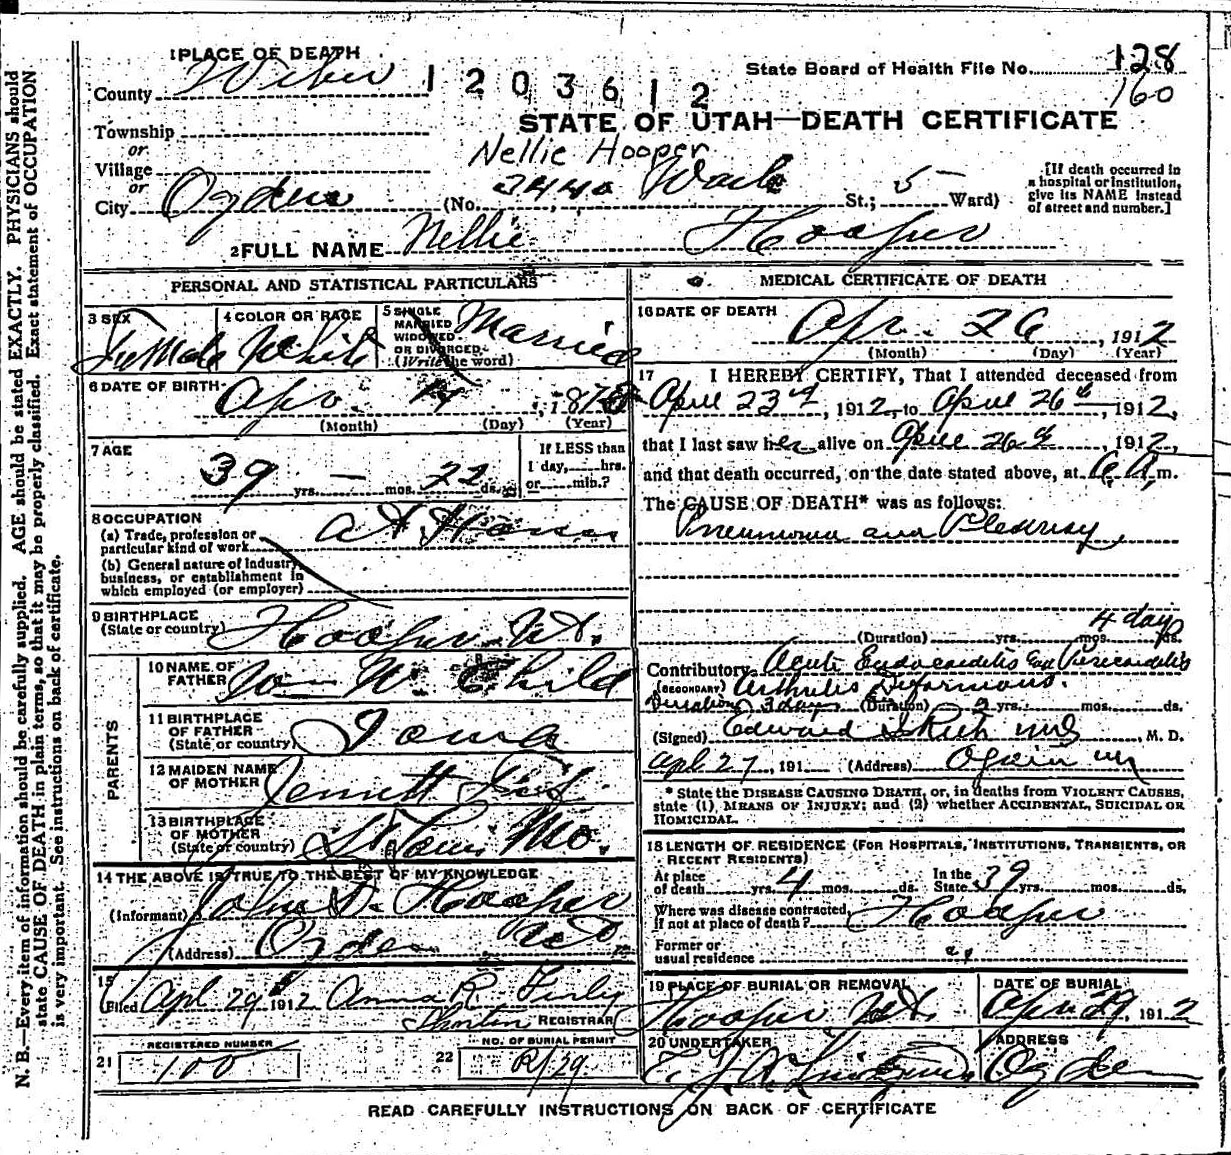 1 PLACE OF DEATH
County Weber
1203612
State Board of Health File No. 128
160
STATE OF UTAH—DEATH CERTIFICATE
Township
or
Village
or
City Ogden
Nellie Hooper
(No. 3440 St.; 5 Ward)
[If death occurred in a hospital or institution, give its NAME instead of street and number.]
2 FULL NAME Nellie Hooper
PERSONAL AND STATISTICAL PARTICULARS
3 SEX
Female
4 COLOR OR RACE
White
5 SINGLE
MARRIED
WIDOWED
OR DIVORCED
(Write the word)
Married
6 DATE OF BIRTH
Apr. , 187
(Month) (Day) (Year)
7 AGE
39 yrs. — mos. 22 ds.
If LESS than
1 day, hrs.
or min.?
8 OCCUPATION
(a) Trade, profession or
particular kind of work
At Home
(b) General nature of Industry,
business, or establishment in
which employed (or employer)
9 BIRTHPLACE
(State or country) Hooper Ut.
PARENTS
10 NAME OF
FATHER Wm W. Child
11 BIRTHPLACE
OF FATHER
(State or country) Iowa
12 MAIDEN NAME
OF MOTHER
13 BIRTHPLACE
OF MOTHER
(State or country) St Louis Mo.
14 THE ABOVE IS TRUE TO THE BEST OF MY KNOWLEDGE
(Informant) John D. Hooper
(Address) Ogden Ut
15
Filed Apl 29 1912 Anna R.
REGISTRAR
21 REGISTERED NUMBER
100
22 NO. OF BURIAL PERMIT
MEDICAL CERTIFICATE OF DEATH
16 DATE OF DEATH
Apr. 26, 1912
(Month) (Day) (Year)
17 I HEREBY CERTIFY, That I attended deceased from
April 23rd, 1912, to April 26th, 1912,
that I last saw her alive on April 26th, 1912,
and that death occurred, on the date stated above, at 6 A m.
The CAUSE OF DEATH* was as follows:
Pneumonia and Pleurisy
(Duration) yrs. mos. 4 days ds.
Contributory Acute Endocarditis and Pericarditis
(SECONDARY) Arthritis Deformans.
Duration 3 days (Duration) 2 yrs. mos. ds.
(Signed) Edward I Rich M.D., M. D.
Apl 27, 191 (Address) Ogden
* State the DISEASE CAUSING DEATH, or, in deaths from VIOLENT CAUSES,
state (1), MEANS OF INJURY; and (2) whether ACCIDENTAL, SUICIDAL OR
HOMICIDAL.
18 LENGTH OF RESIDENCE (FOR HOSPITALS, INSTITUTIONS, TRANSIENTS, OR
RECENT RESIDENTS)
At place
of death yrs. 4 mos. ds.
In the
State 39 yrs. mos. ds.
Where was disease contracted,
if not at place of death? Hooper
Former or
usual residence
19 PLACE OF BURIAL OR REMOVAL
Hooper Ut.
DATE OF BURIAL
Apr 29, 1912
20 UNDERTAKER
ADDRESS
Ogden
READ CAREFULLY INSTRUCTIONS ON BACK OF CERTIFICATE
N. B.—Every item of information should be carefully supplied. AGE should be stated EXACTLY. PHYSICIANS should
state CAUSE OF DEATH in plain terms, so that it may be properly classified. Exact statement of OCCUPATION
is very important. See instructions on back of certificate.